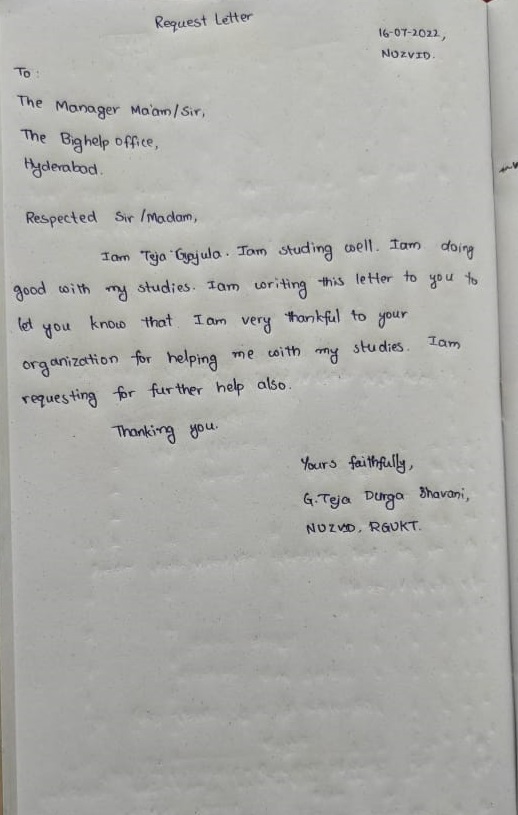 Request Letter
16-07-2022,
NUZVID.
To:
The Manager Ma'am/Sir,
The Bighelp office,
Hyderabad.
Respected Sir /Madam,
Iam Teja Gajula. Iam studing well. Iam doing
good with my studies. Iam writing this letter to you to
let you know that Iam very thankful to your
organization for helping me with my studies. Iam
requesting for further help also.
Thanking you.
Yours faithfully,
G.Teja Durga Bhavani,
NUZVID, RGUKT.